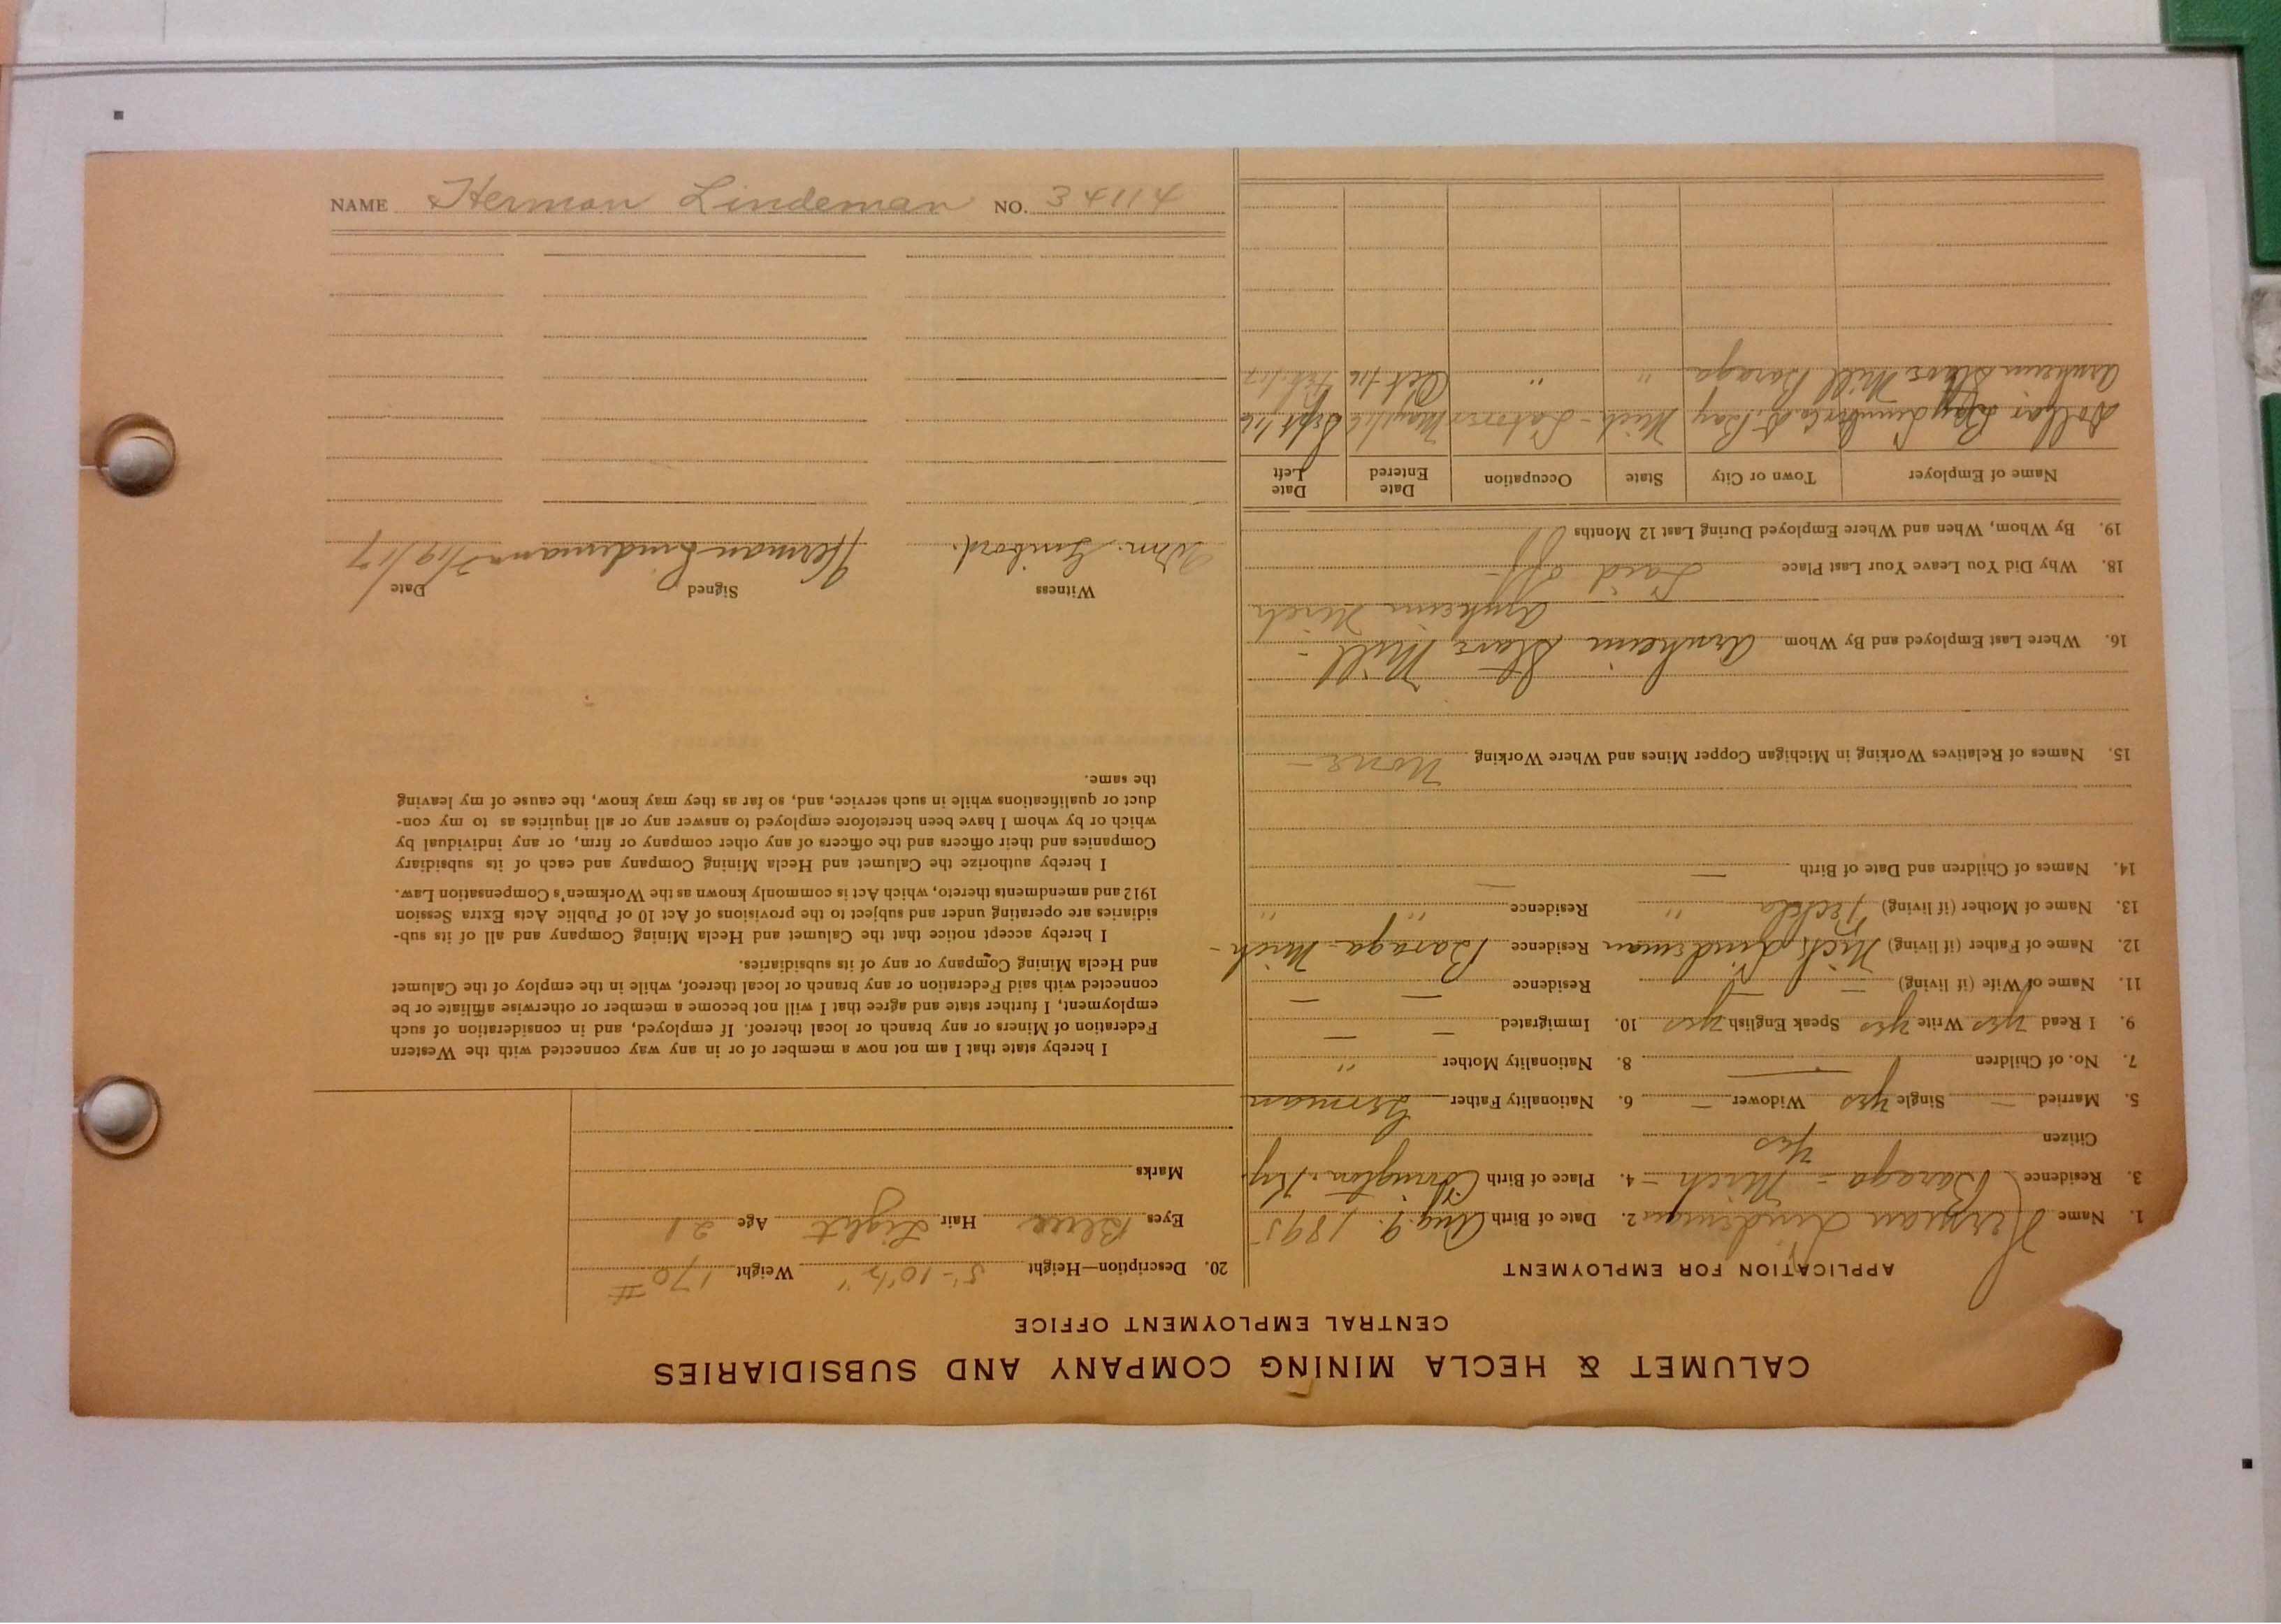 CALUMET & HECLA MINING COMPANY AND SUBSIDIARIES
CENTRAL EMPLOYMENT OFFICE
APPLICATION FOR EMPLOYMENT
1. Name Herman Lindeman 2. Date of Birth Aug. 9. 1895
3. Residence Baraga - Mich - 4. Place of Birth Covington. Ky.
Citizen Yes
5. Married — Single yes Widower — 6. Nationality Father German
7. No. of Children — 8. Nationality Mother "
9. I Read yes Write yes Speak English yes 10. Immigrated — —
11. Name of Wife (if living) — — Residence — —
12. Name of Father (if living) Nick Lindeman Residence Baraga Mich -
13. Name of Mother (if living) Teckla " Residence " "
14. Names of Children and Date of Birth — —
15. Names of Relatives Working in Michigan Copper Mines and Where Working None —
16. Where Last Employed and By Whom Arnheim Stave Mill -
Arnheim Mich
18. Why Did You Leave Your Last Place Laid off-
19. By Whom, When and Where Employed During Last 12 Months
Name of Employer Town or City State Occupation Date Entered Date Left
Dollar Bay Lumber Co D. Bay Mich - Laborer May/16 Sept/16
Arnheim Stave Mill Baraga " " Oct/16 Feb/17
20. Description—Height 5'-10½" Weight 170 #
Eyes Blue Hair Light Age 21
Marks
I hereby state that I am not now a member of or in any way connected with the Western
Federation of Miners or any branch or local thereof. If employed, and in consideration of such
employment, I further state and agree that I will not become a member or otherwise affiliate or be
connected with said Federation or any branch or local thereof, while in the employ of the Calumet
and Hecla Mining Company or any of its subsidiaries.
I hereby accept notice that the Calumet and Hecla Mining Company and all of its sub-
sidiaries are operating under and subject to the provisions of Act 10 of Public Acts Extra Session
1912 and amendments thereto, which Act is commonly known as the Workmen's Compensation Law.
I hereby authorize the Calumet and Hecla Mining Company and each of its subsidiary
Companies and their officers and the officers of any other company or firm, or any individual by
which or by whom I have been heretofore employed to answer any or all inquiries as to my con-
duct or qualifications while in such service, and, so far as they may know, the cause of my leaving
the same.
Witness Signed Date
Wm. Herman Lindemann 2/19/17
NAME Herman Lindeman NO. 34114